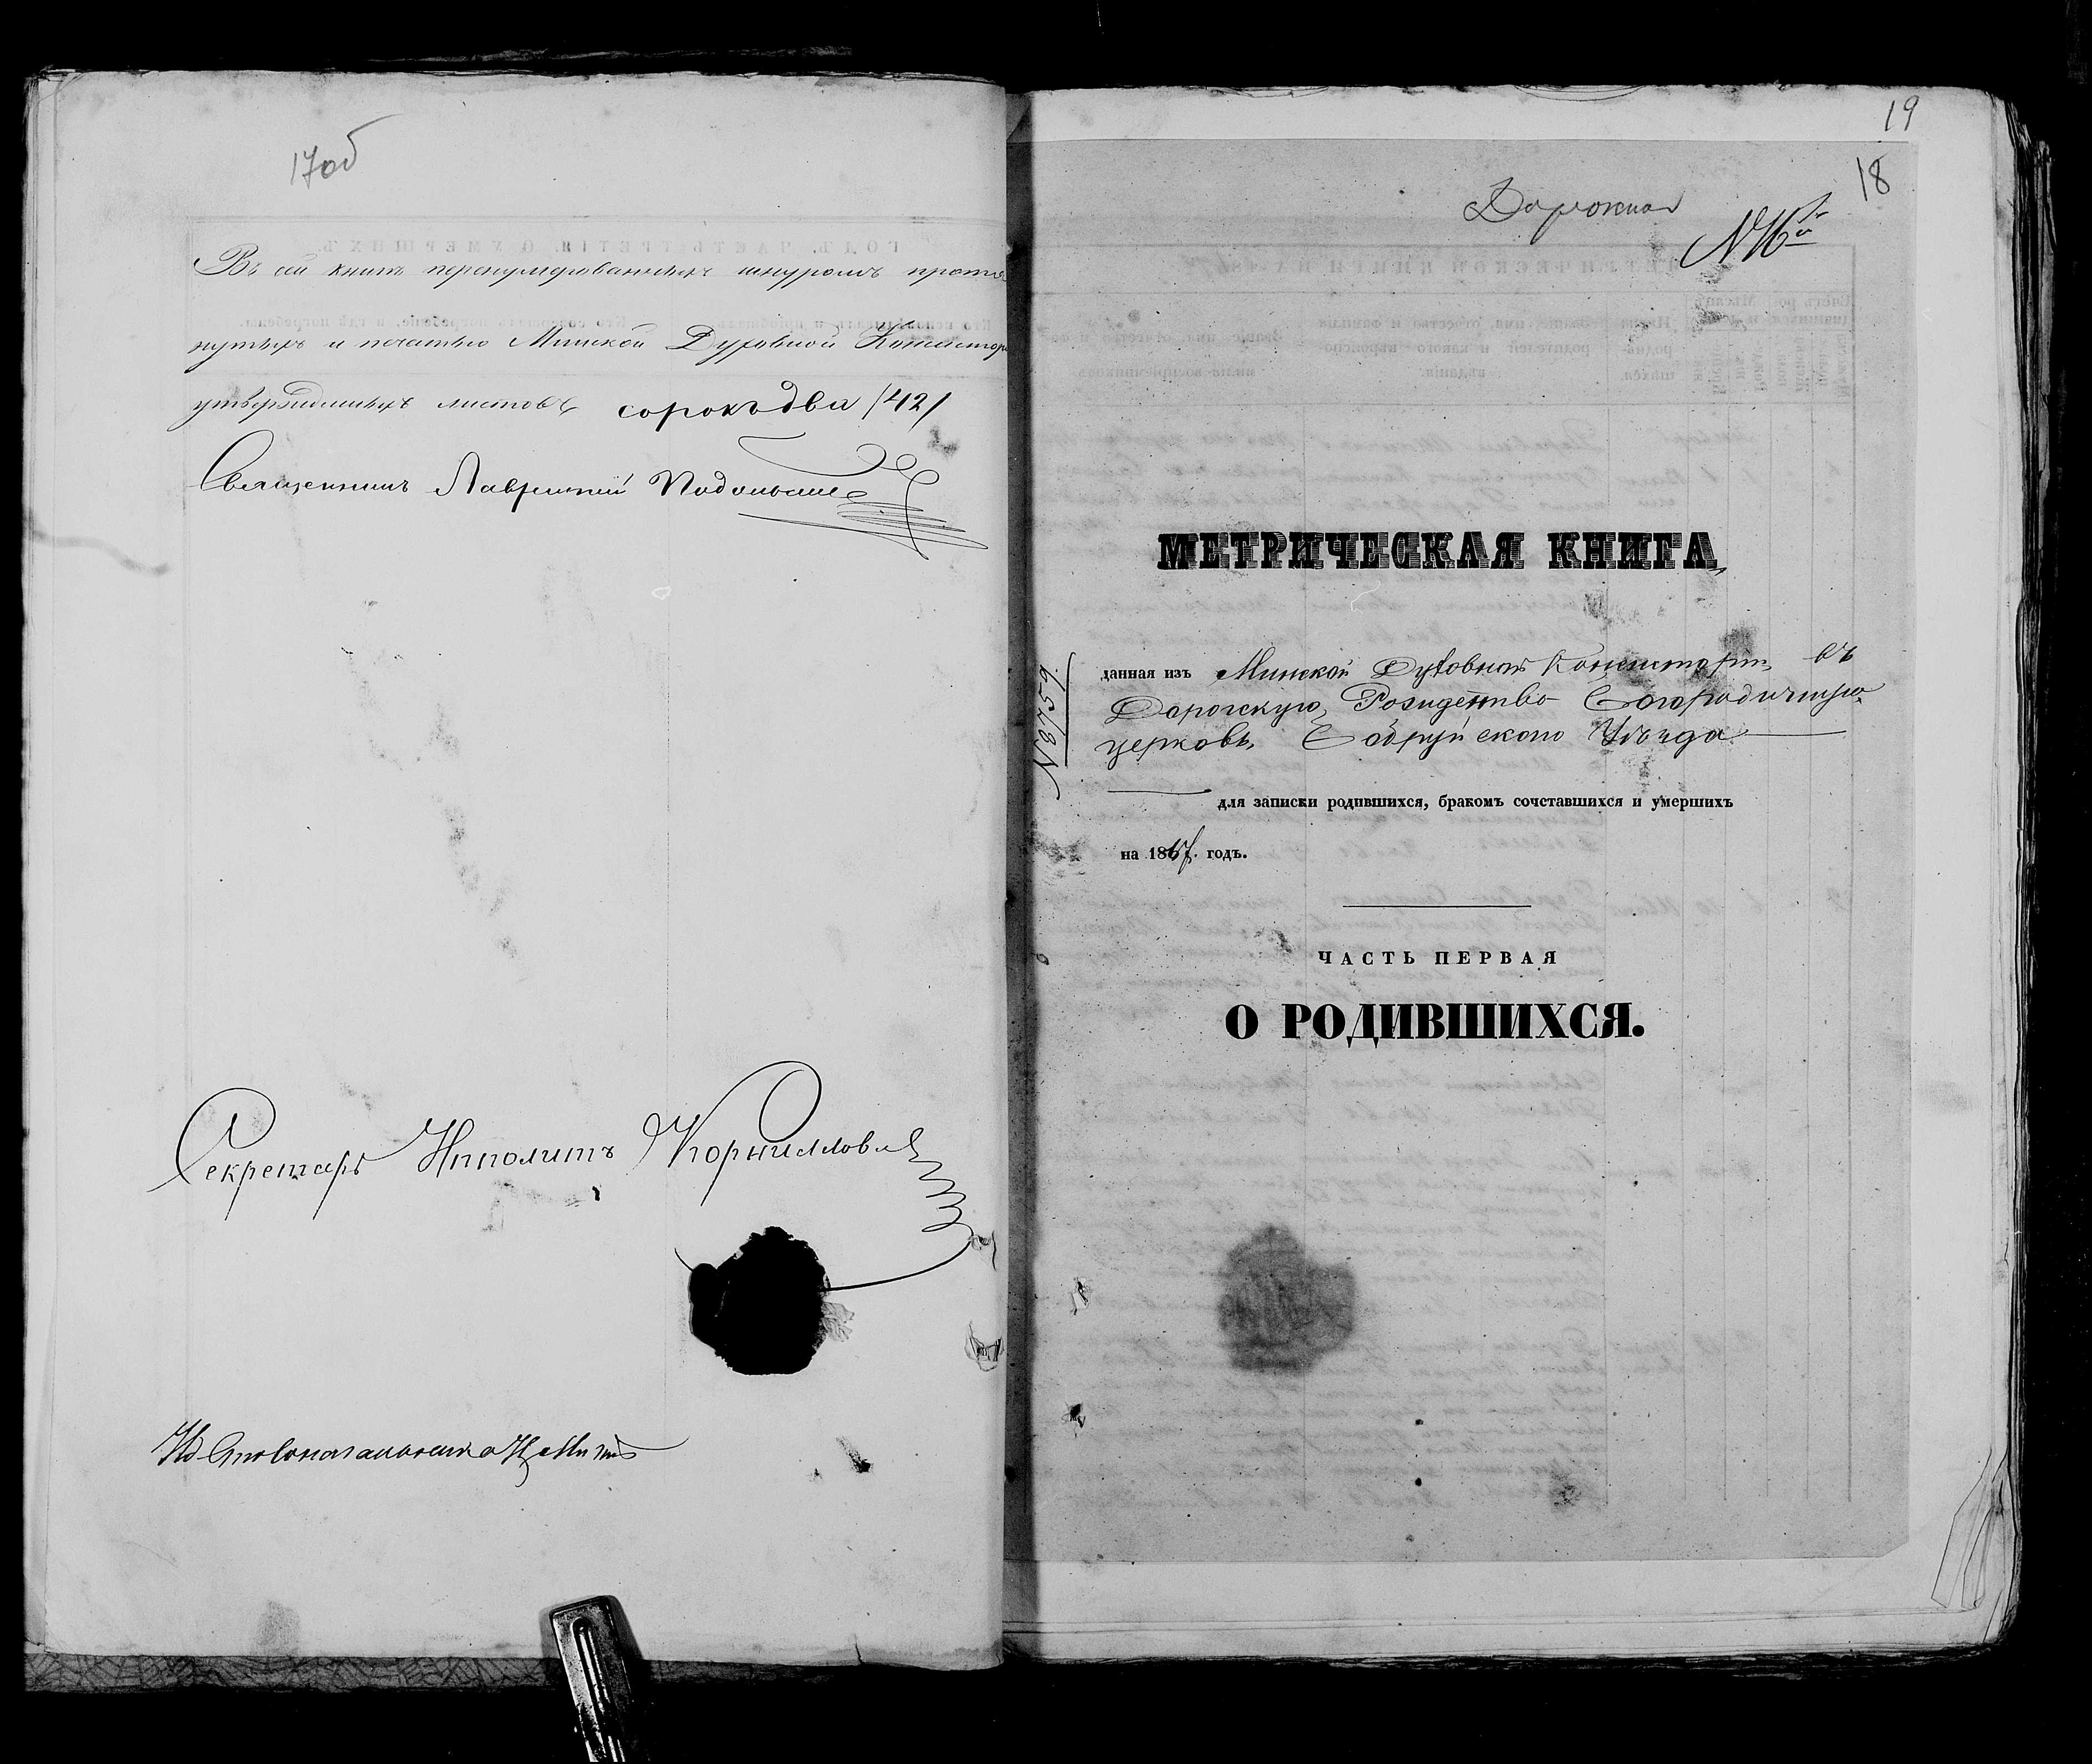 17об
Въ сей книгѣ перенумерованныхъ шнуромъ протя
нутыхъ и печатью Минской Духовной Консистор
утвержденныхъ листовъ сорокъ два /42/
Священникъ Лаврентій
Секретарь Ипполитъ Корниллов
19
18
N 16й
МЕТРИЧЕСКАЯ КНИГА,
N 8759
данная изъ Минской Духовной Консисторіи въ
Дорогскую Рождество Богородичную
церковь Бобруйского Уѣзда
для записки родившихся, бракомъ сочставшихся и умершихъ
на 1867. годъ.
ЧАСТЬ ПЕРВАЯ
О РОДИВШИХСЯ.